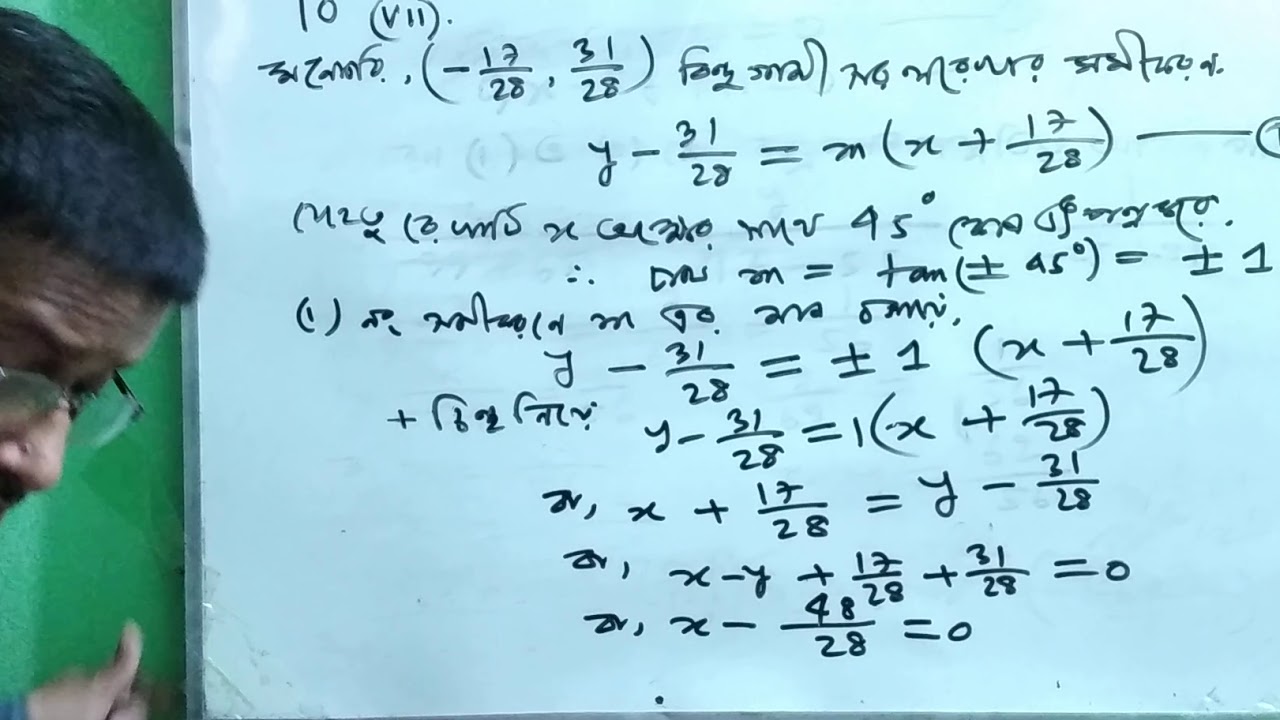 10 (VII).
মনেকরি, (-17/28, 31/28) বিন্দুগামী সরলরেখার সমীকরণ.
y - 31/28 = m(x + 17/28) —— (1
যেহেতু রেখাটি x অক্ষের সাথে 45° কোণ উৎপন্ন করে.
∴ ঢাল m = tan(± 45°) = ± 1
(1) নং সমীকরণে m এর মান বসায়ে,
y - 31/28 = ± 1 (x + 17/28)
+ চিহ্ন নিয়ে y - 31/28 = 1(x + 17/28)
বা, x + 17/28 = y - 31/28
বা, x-y + 17/28 + 31/28 = 0
বা, x - 48/28 = 0